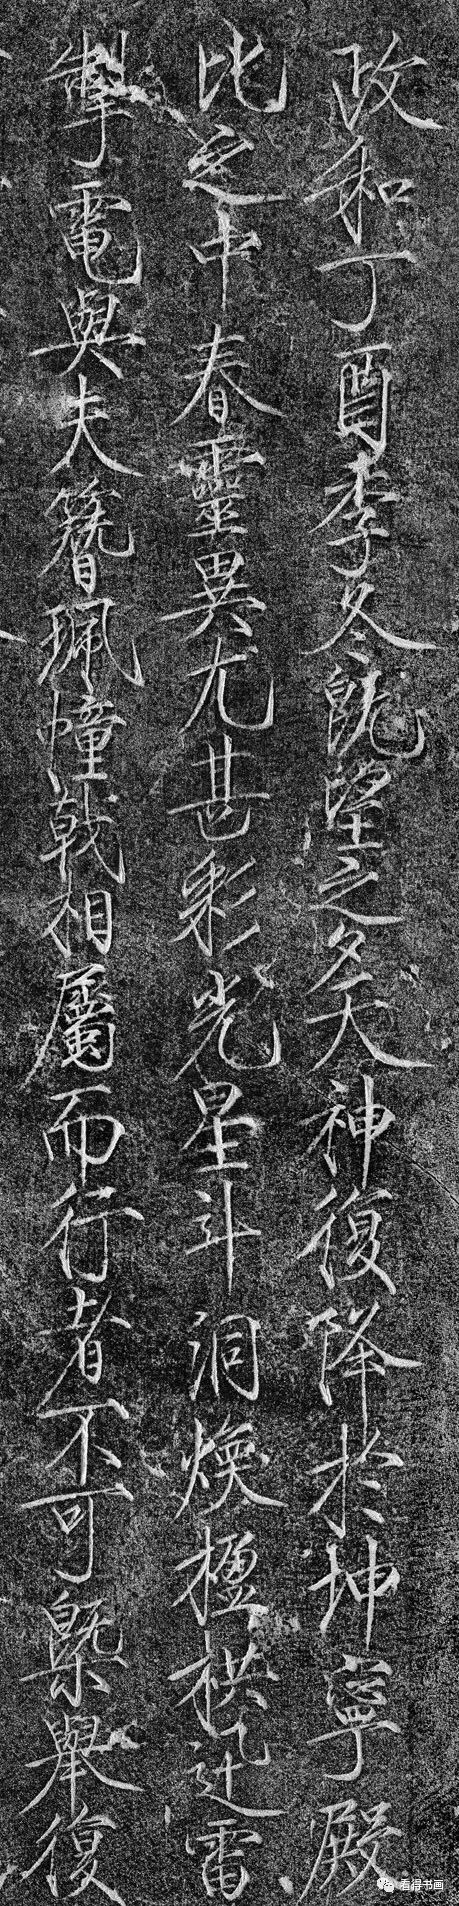 政和丁酉季冬既望之夕天神復降於坤寧殿
比之中春靈異尤甚彩光星斗洞煥楹栱迅雷
掣電與夫簪珮幢戟相屬而行者不可槩舉復
看得书画